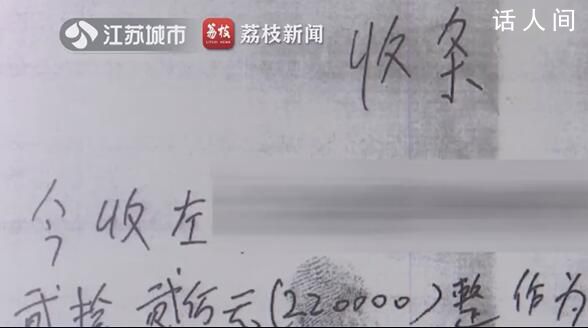 江苏城市 荔枝 荔枝新闻 话人间
收条
今收左
贰拾贰 元(220000)整作为